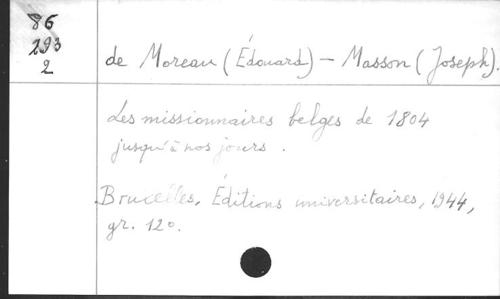 86
293
2
de Moreau (Édouard) — Masson (Joseph).
Les missionnaires belges de 1804
jusqu'à nos jours.
Bruxelles, Éditions universitaires, 1944,
gr. 12°.